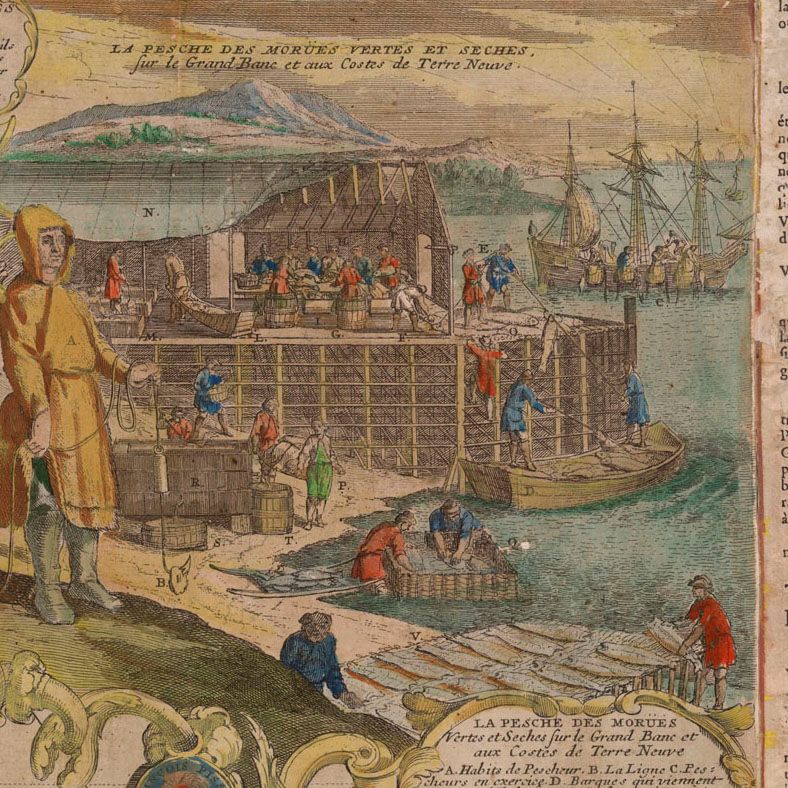 LA PESCHE DES MORÜES VERTES ET SECHES,
sur le Grand Banc et aux Costes de Terre Neuve.
N.
H
E
A
M.
L.
G
F.
O
C
R
P
D
S
T
Q
B
V
LA PESCHE DES MORÜES
Vertes et Seches sur le Grand Banc et
aux Costes de Terre Neuve
A. Habits de Pescheur. B. La Ligne C. Pes=
cheurs en exercice. D. Barques qui viennent